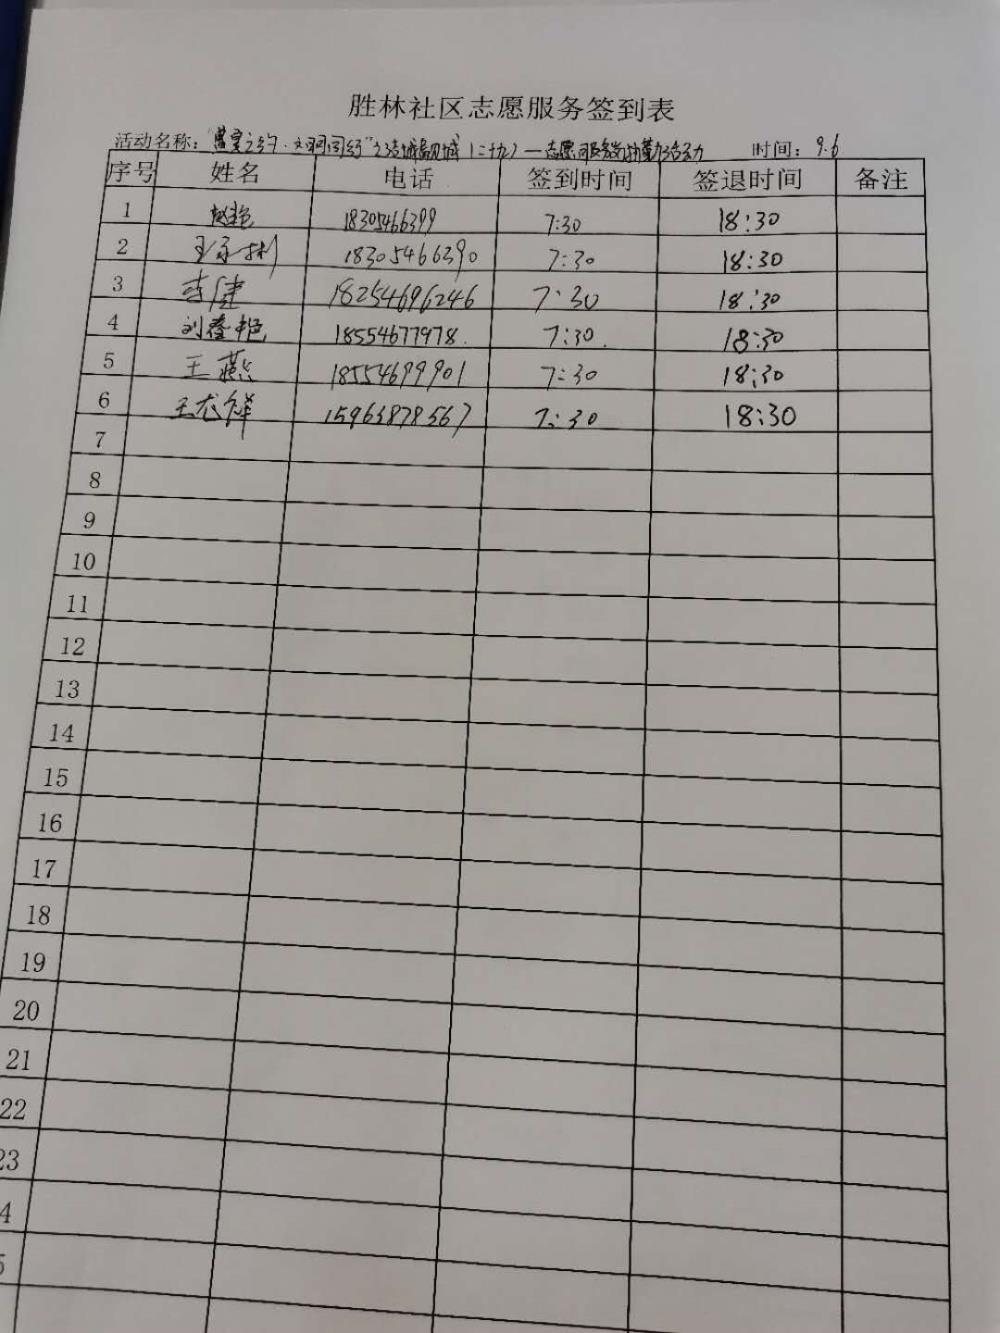 胜林社区志愿服务签到表
活动名称： 之约·文明同行"之 城 城（二十九）—志愿服务 活动 时间：9.6
序号 姓名 电话 签到时间 签退时间 备注
1 赵艳 18305466399 7:30 18:30
2 王永利 18305466390 7:30 18:30
3 李健 18254696246 7:30 18:30
4 刘春艳 18554677978. 7:30. 18:30
5 王燕 18554699901 7:30 18:30
6 王龙祥 15963878567 7:30 18:30
7
8
9
10
11
12
13
14
15
16
17
18
19
20
21
22
23
4
5